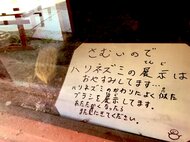 さむいので
ハリネズミの展示は
おやすみしてます。
ハリネズミのかわりによく似た
ブラシを展示してます。
あたたかくなったら
また見にきてください。